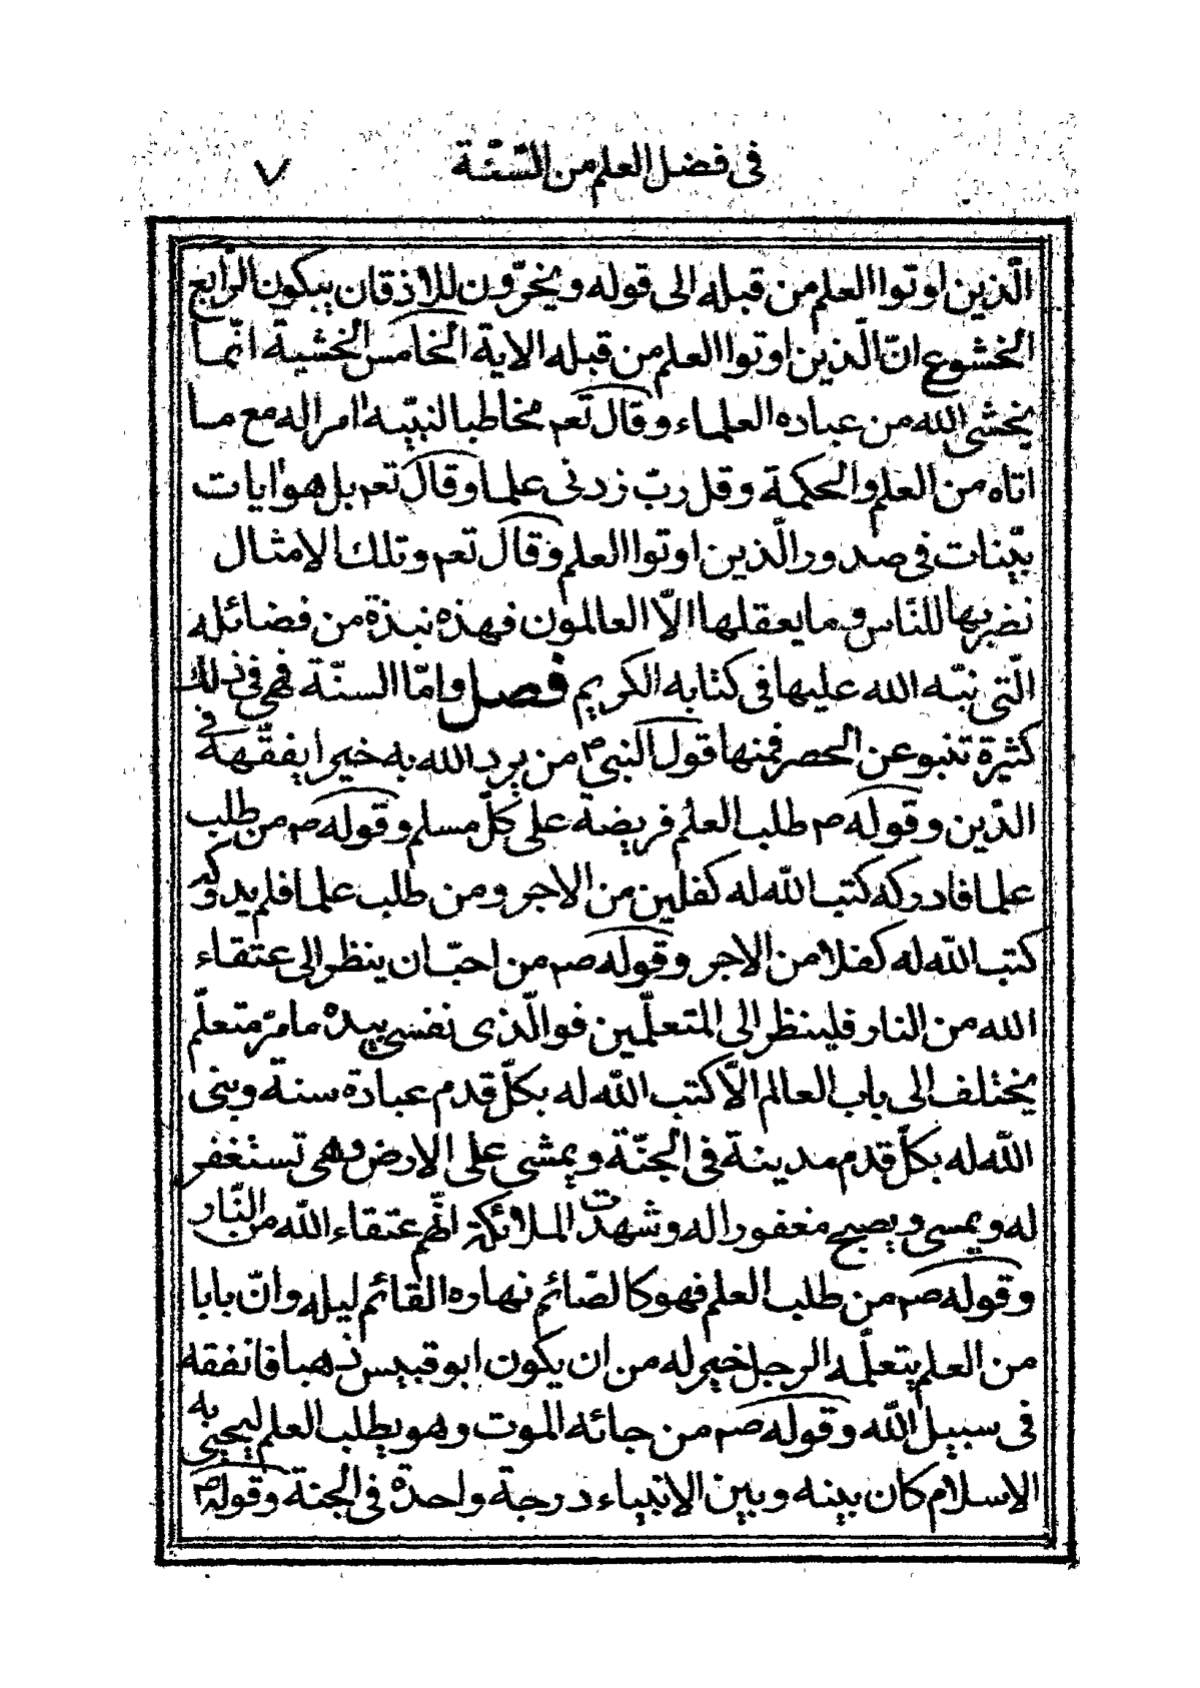 فى فضل العلم من السّنّة ٧
الّذين اوتوا العلم من قبله الى قوله ويخرّون للاذقان يبكون الرّابع
الخشوع انّ الّذين اوتوا العلم من قبله الاية الخامس الخشية انّما
يخشى الله من عباده العلماء وقال تعم مخاطبا لنبيّه امرا له مع ما
اتاه من العلم والحكمة وقل ربّ زدنى علما وقال تعم بل هو ايات
بيّنات فى صدور الّذين اوتوا العلم وقال تعم وتلك الامثال
نضربها للنّاس وما يعقلها الّا العالمون فهذه نبذة من فضائله
الّتى نبّه الله عليها فى كتابه الكريم فصل وامّا السنّة فهى فى ذلك
كثيرة تنبو عن الحصر فمنها قول النبىّ ص من يرد الله به خيرا يفقّهه فى
الدّين وقوله ص طلب العلم فريضة على كلّ مسلم وقوله ص من طلب
علما فادركه كتب الله له كفلين من الاجر ومن طلب علما فلم يدركه
كتب الله له كفلا من الاجر وقوله صم من احبّ ان ينظر الى عتقاء
الله من النار فلينظر الى المتعلّمين فوالّذى نفسى بيده ما من متعلّم
يختلف الى باب العالم الّا كتب الله له بكلّ قدم عبادة سنة وبنى
الله له بكلّ قدم مدينة فى الجنّة ويمشى على الارض وهى تستغفر
له ويمسى ويصبح مغفورا له وشهدت الملائكة انّهم عتقاء الله من النّار
وقوله صم من طلب العلم فهو كالصّائم نهاره القائم ليله وانّ بابا
من العلم يتعلّمه الرجل خير له من ان يكون ابو قبيس ذهبا فانفقه
فى سبيل الله وقوله صم من جائه الموت وهو يطلب العلم ليحيى به
الاسلام كان بينه وبين الانبياء درجة واحدة فى الجنة وقوله ص